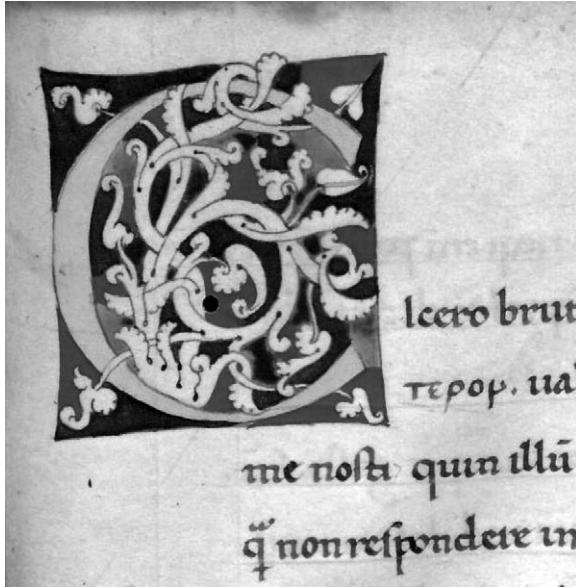 CIcero brut
τερορ. ual
me noſti quin illũ
q̃ non reſpondere in